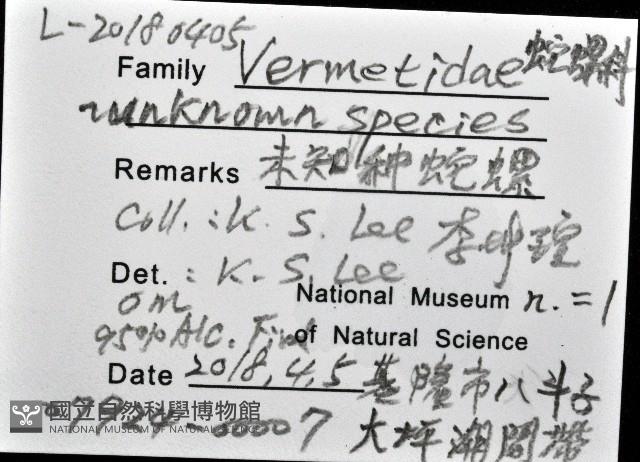 L-20180405
Family Vermetidae 蛇螺科
unknown species
Remarks 未知种蛇螺
Coll. : K. S. Lee 李坤瑄
Det. : K. S. Lee
0m National Museum n. = 1
95% Alc. of Natural Science
Date 2018,4,5 基隆市八斗子
國立自然科學博物館
NATIONAL MUSEUM OF NATURAL SCIENCE
大坪潮間帶